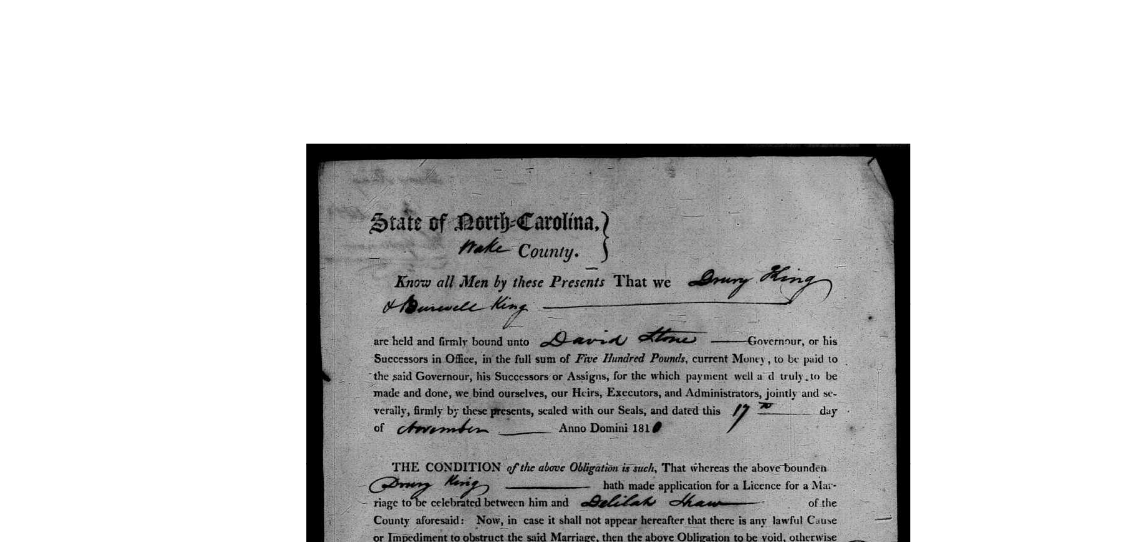 State of North-Carolina,
Wake County.
Know all Men by these Presents That we Drury King
& Burwell King
are held and firmly bound unto David Stone Governour, or his
Successors in Office, in the full sum of Five Hundred Pounds, current Money, to be paid to
the said Governour, his Successors or Assigns, for the which payment well a d truly, to be
made and done, we bind ourselves, our Heirs, Executors, and Administrators, jointly and se-
verally, firmly by these presents, sealed with our Seals, and dated this 17th day
of November Anno Domini 1810
THE CONDITION of the above Obligation is such, That whereas the above bounden
Drury King hath made application for a Licence for a Mar-
riage to be celebrated between him and Delilah Shaw of the
County aforesaid: Now, in case it shall not appear hereafter that there is any lawful Cause
or Impediment to obstruct the said Marriage, then the above Obligation to be void, otherwise